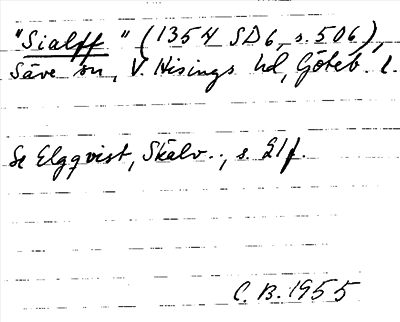 "Sialff" (1354 SD 6, s. 506),
Säve sn, V. Hisings hd, Göteb. l.
Se Elgqvist, Skälv.., s. 21f.
C. B. 1955